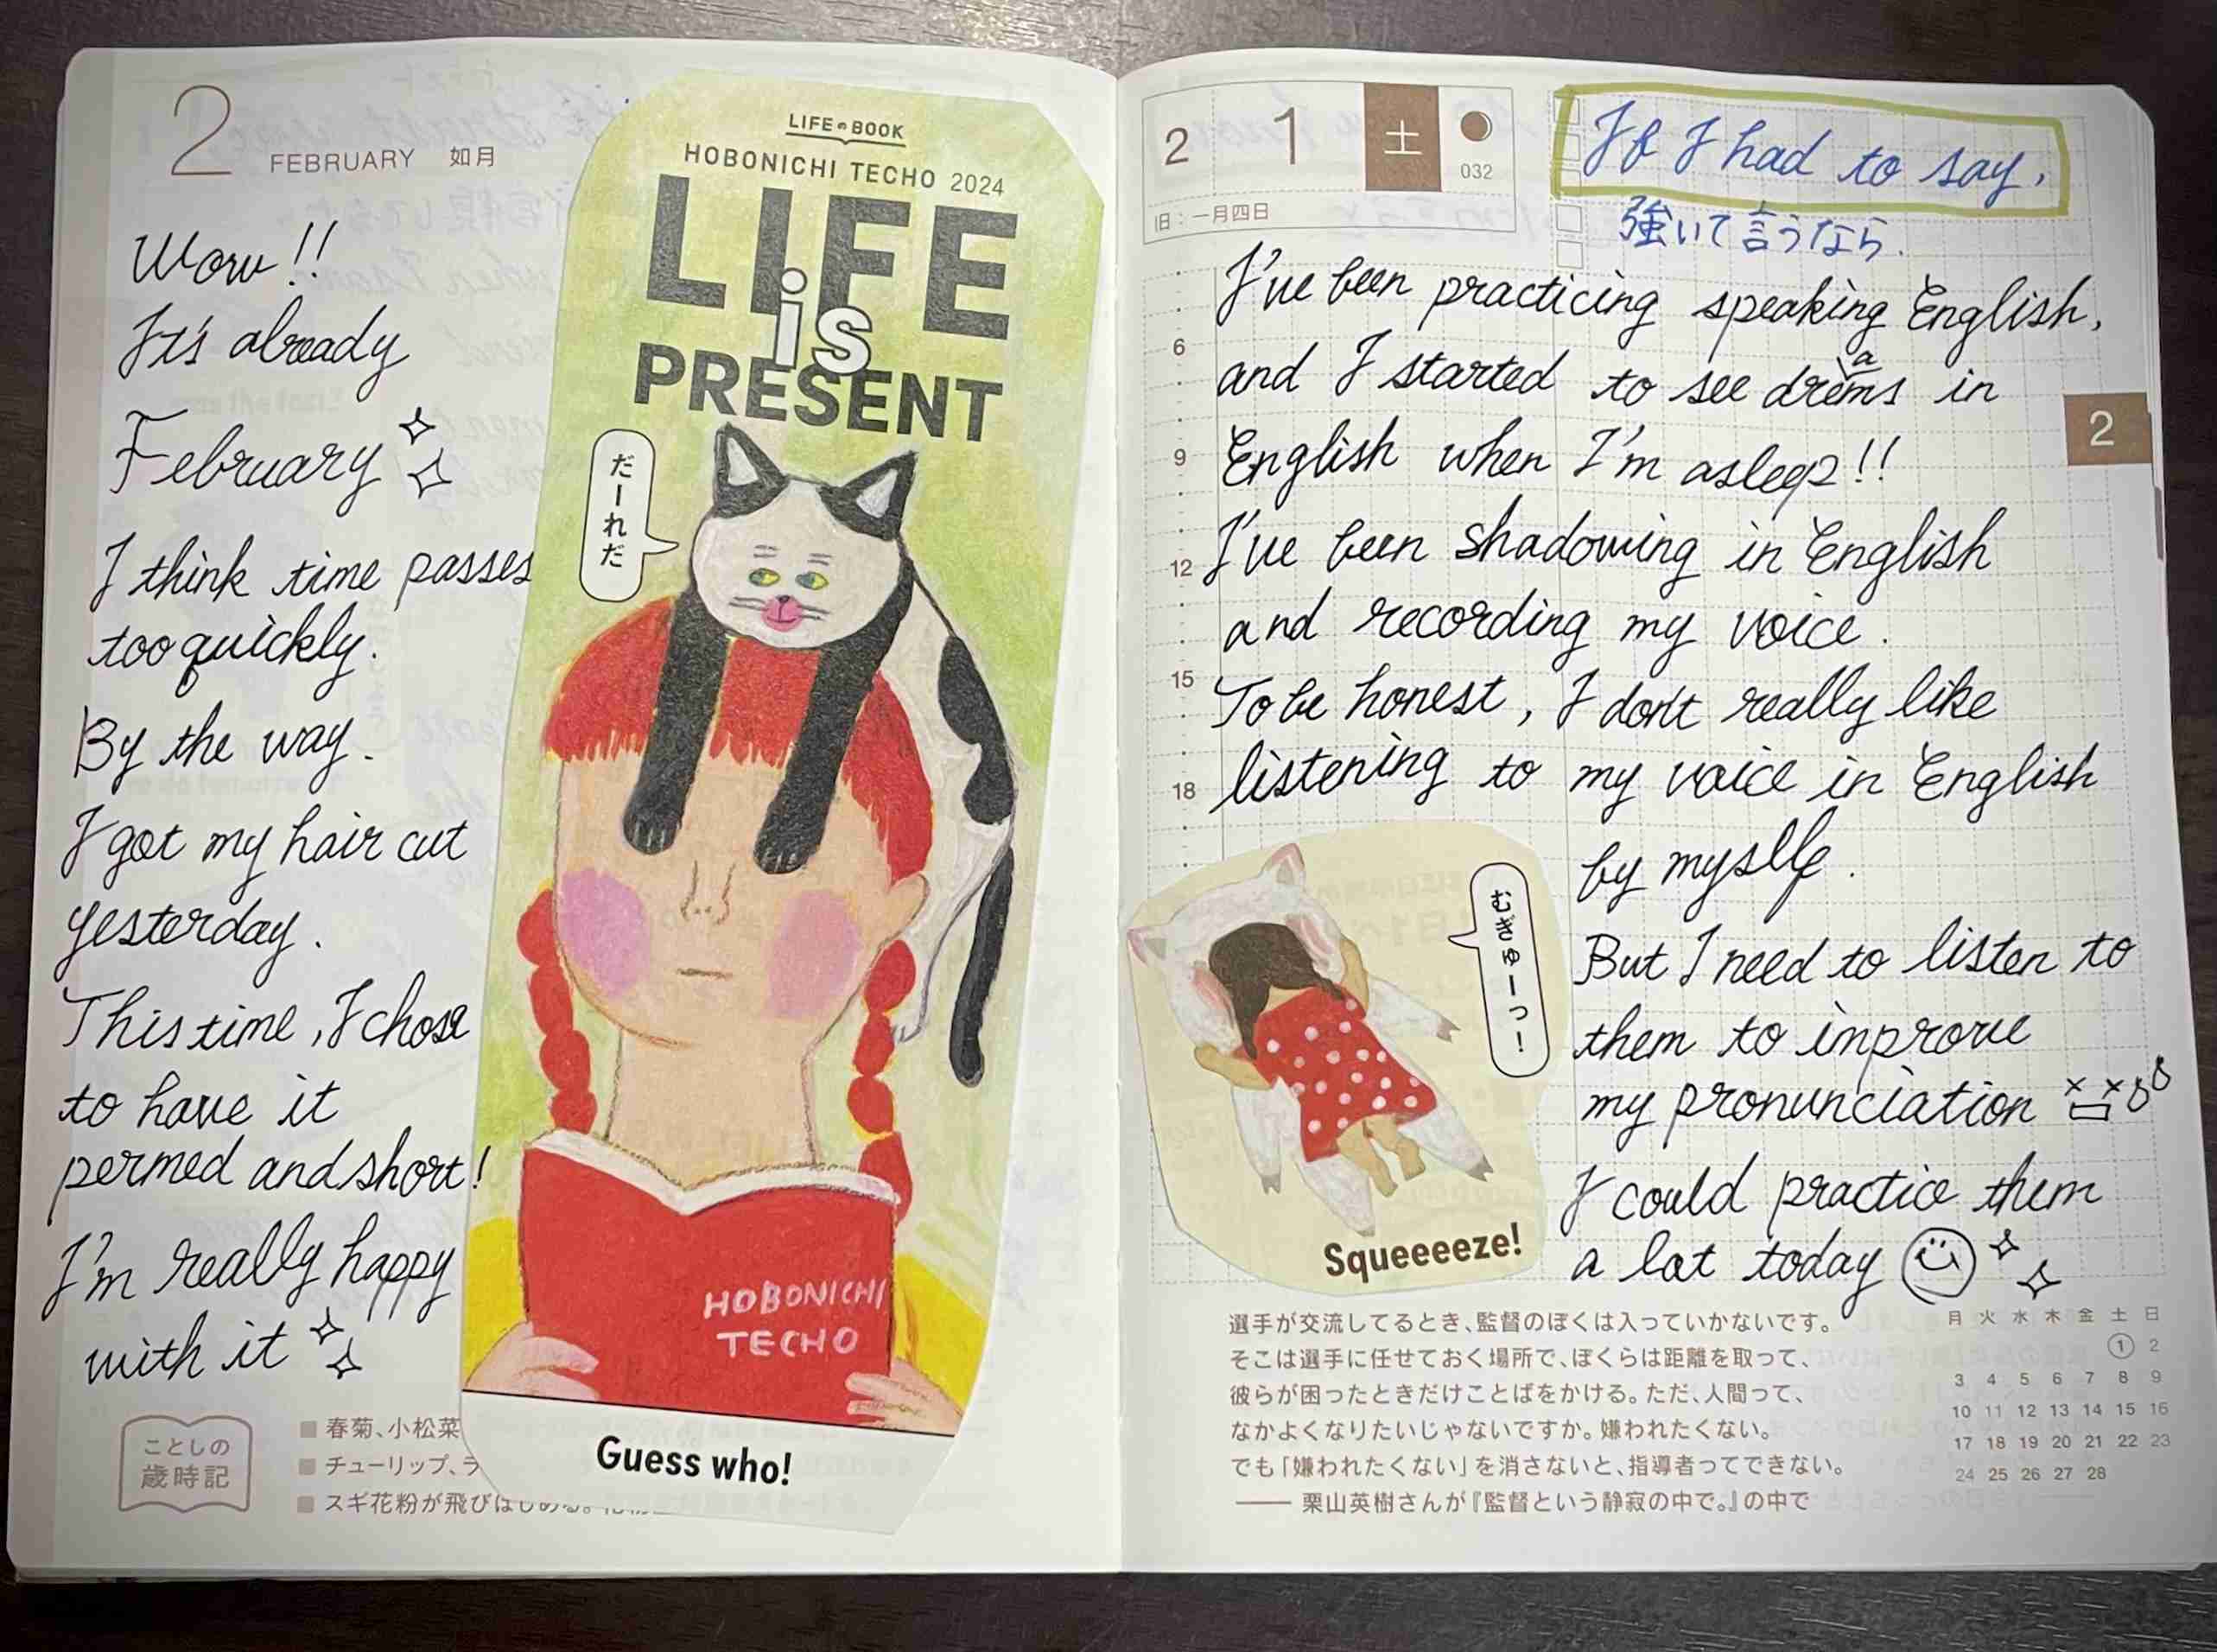 2 FEBRUARY 如月
Wow!!
It's already
February
I think time passes
too quickly.
By the way.
I got my hair cut
yesterday.
This time, I chose
to have it
permed and short!
I'm really happy
with it
ことしの
歳時記
春菊、小松菜
チューリップ、ラ
スギ花粉が飛びはじめる。
LIFEのBOOK
HOBONICHI TECHO 2024
LIFE
is
PRESENT
だーれだ
HOBONICHI
TECHO
Guess who!
2 1 土
032
旧：一月四日
If I had to say,
強いて言うなら.
I've been practicing speaking English,
and I started to see dreams in
English when I'm asleep!!
I've been shadowing in English
and recording my voice.
To be honest, I don't really like
listening to my voice in English
by myslfe.
But I need to listen to
them to improve
my pronunciation
I could practice them
a lot today
6
9
12
15
18
2
むぎゅーっ！
Squeeeeze!
選手が交流してるとき、監督のぼくは入っていかないです。
そこは選手に任せておく場所で、ぼくらは距離を取って、
彼らが困ったときだけことばをかける。ただ、人間って、
なかよくなりたいじゃないですか。嫌われたくない。
でも「嫌われたくない」を消さないと、指導者ってできない。
—— 栗山英樹さんが『監督という静寂の中で。』の中で
月 火 水 木 金 土 日
1 2
3 4 5 6 7 8 9
10 11 12 13 14 15 16
17 18 19 20 21 22 23
24 25 26 27 28